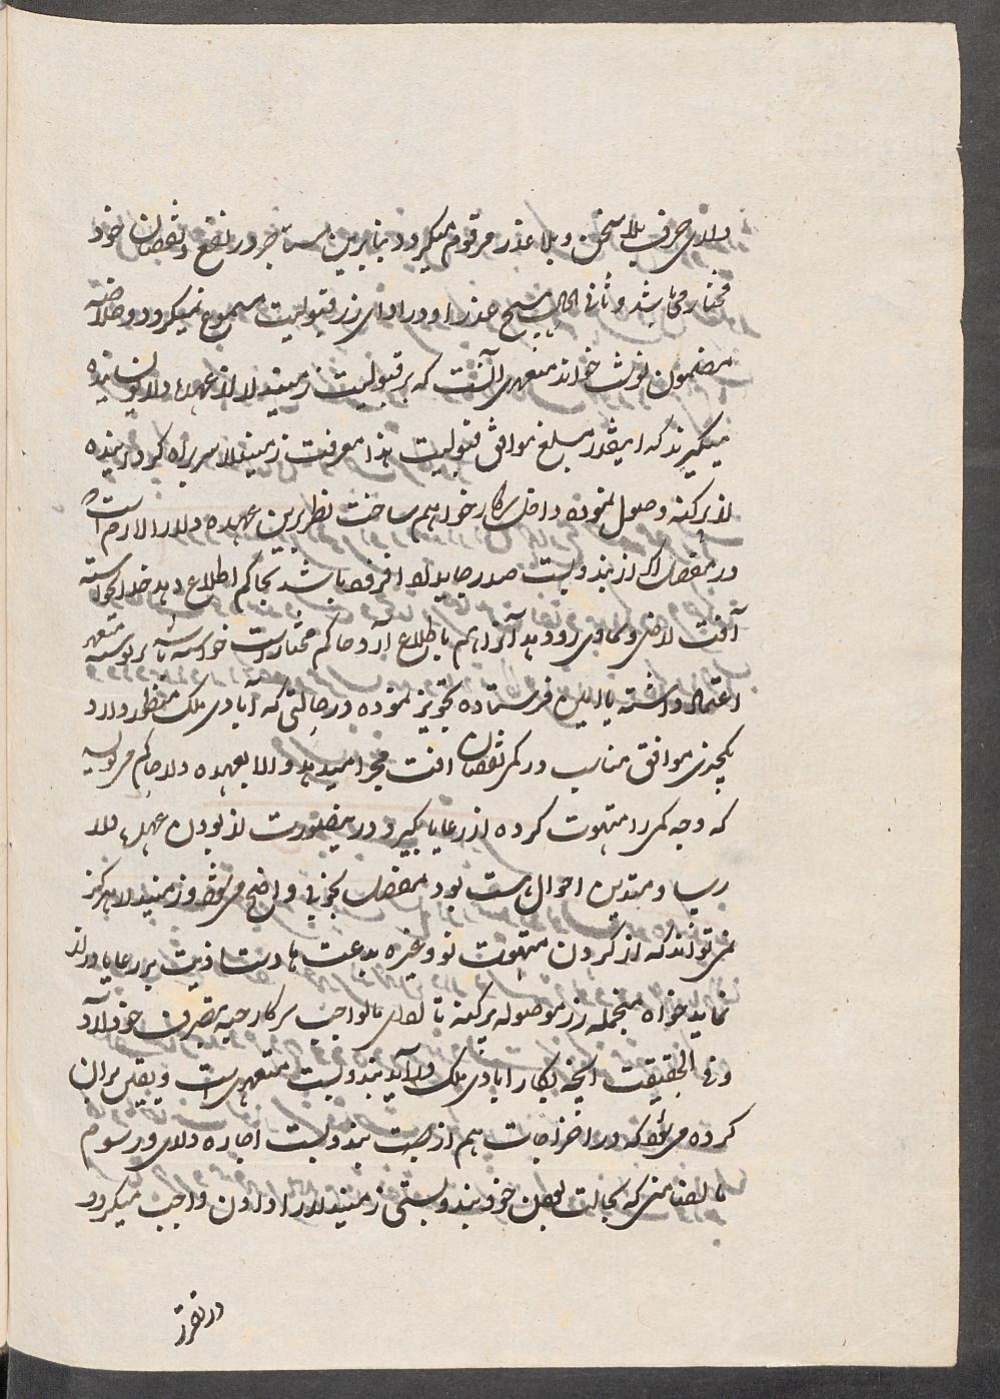 دلدی حرف بلا سخن و بلا عذر مرقوم میگیرد و بنابرین مستاجر در نفع و نقصان خود
مختار می باشد و ثانی الحال هیچ عذر او در ادای زر قبولیت مسموع نمیگردد و خلاصه
مضمون نوشت خواند متعهدی آنست که بر قبولیت زمیندار از عهده دار نوشانیده
میگیرند که اینقدر مبلغ موافق قبولیت هذا معرفت زمیندار سربراه کرد
از پرکنه وصول نموده داخل سرکار خواهم ساخت نظر برین عهده دار را لازم است
در مفصل اکر از بندوبست صدر جایداد افزود باشد بحاکم اطلاع دهد خدانخواسته
آفت ارضی و سماوی رو دهد آنرا هم باطلاع آرد حاکم مختارست خواسته باشد
اعتماد داشته یا امین فرستاده تجویز نموده در حالتی که آبادی ملک منظور دارد
چیزی موافق مناسب در کمی نقصان افت مجرا میدهد والا بعهده دار حاکم میگوید
که وجه کمی را متهوت کرده از رعایا بگیرد درینصورت از بودن عهده دار
رسا و متدین احوال هست بود مفصل بخوبی واضح میشود و زمیندار هرگز
نمی تواند که از کردن متهوت نو و غیره بدعت ها دست اذیت بر رعایا دراز
نماید خواه منجمله زر موصوله پرکنه تا ادای مالواجب سرکار حبه بتصرف خود آرد
و فی الحقیقت آنچه بکار ابادی ملک در آید بندوبست متعهدی است و یقین بران
کرده میشود که در اخراجات هم از جهت بندوبست اجاره داری و رسوم
مالضامنی که بحالت بعین خود بندوبستی زمیندار را دادن واجب میگردد
در تقرر